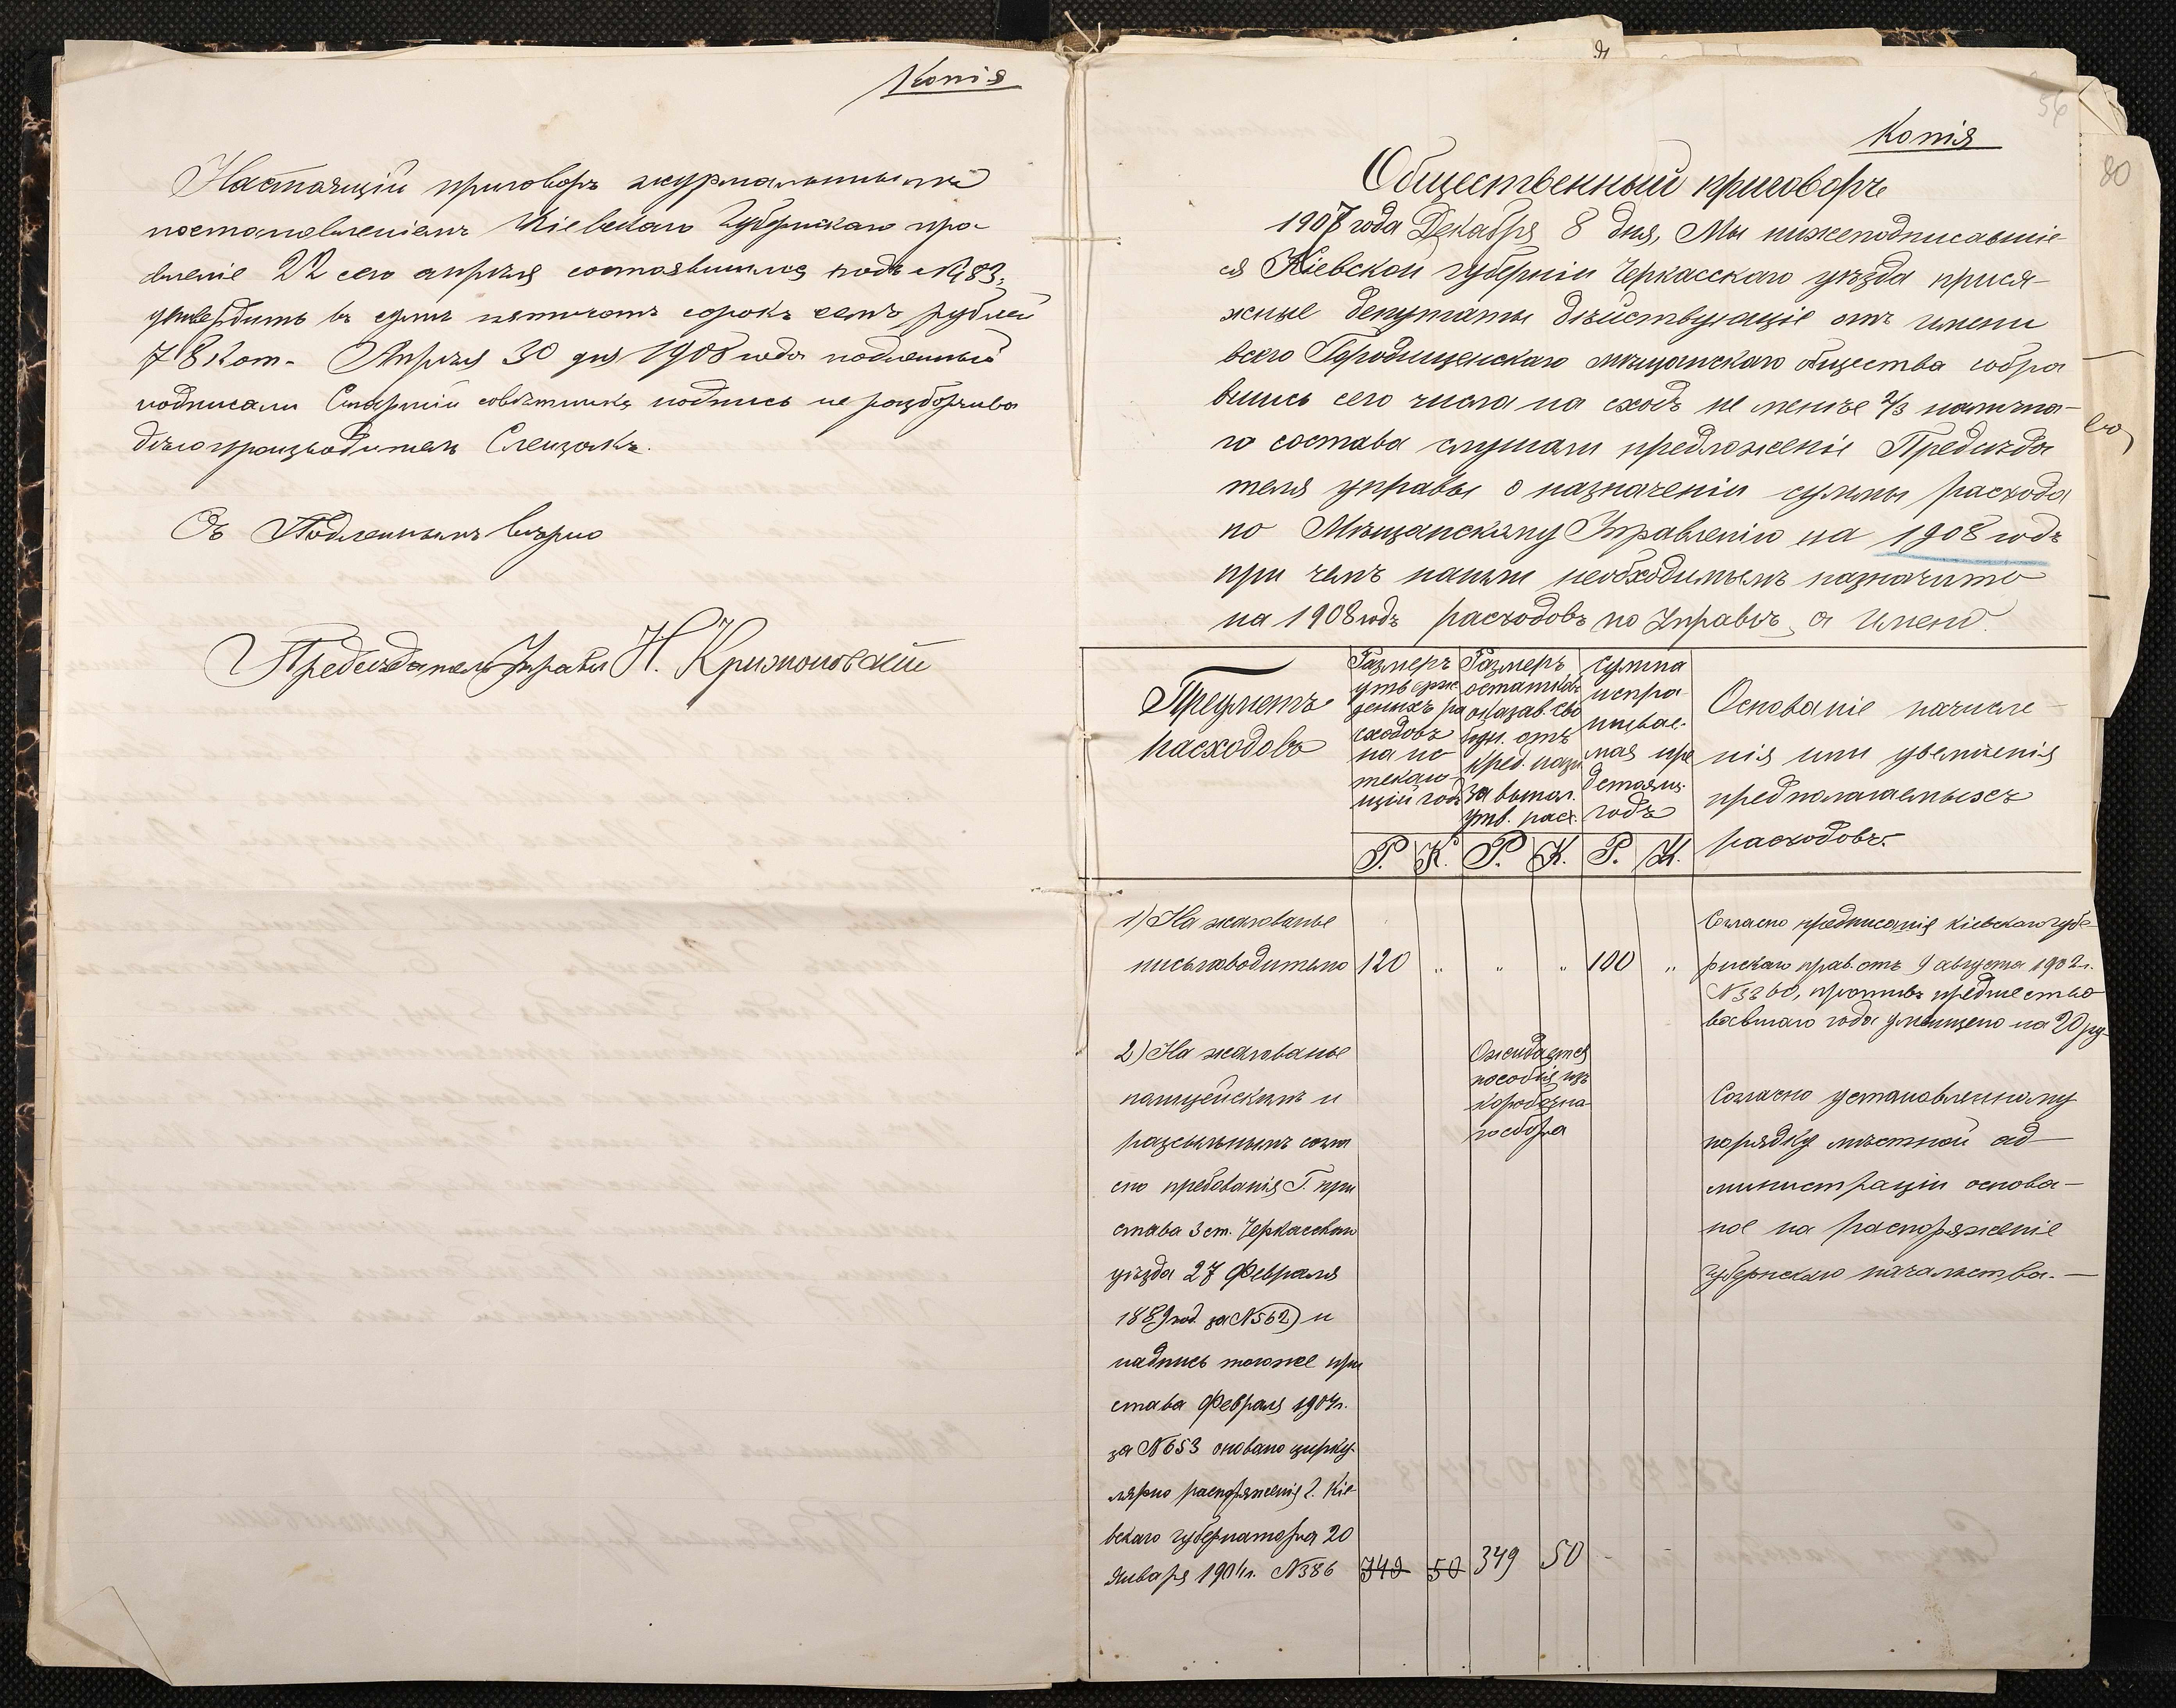 Копія
Настоящій приговоръ журнальнымъ
постановленіемъ Кіевскаго Губернскаго пра-
вленіе 22 сего апрѣля состоявшимся подъ №183,
утвердить въ сумѣ пятьсотъ сорокъ семь рублей
78 Коп. Апрѣля 30 дня 1908 года подленный
подписали Старшій совѣтникъ подпись не разборчива
дѣлопроизводитель
Съ Подленнымъ вѣрно
Предсѣдатель Управы Н. Крижановскій
56
Копія
80
Общественный приговоръ
1907 года Декабря 8 дня, Мы нижеподписавшіе-
ся Кіевской губерніи Черкасскаго уѣзда прися-
жные депутаты дѣйствующіе отъ имени
всего Городищенскаго мѣщанскаго общества собра
вшись сего числа на сходъ не менѣе 2/3 налична-
го состава слушали предложеніе Предсѣда
теля управы о назначеніи суммы расхода
по Мѣщанскому Управленію на 1908 годъ
при чемъ нашли необходимымъ назначить
на 1908 годъ расходовъ по Управѣ, а Именно
Предметъ
расходовъ
Размеръ
утверж
денихъ ра
сходовъ
на ис
текаю-
щій годъ
Размеръ
остатковъ
оказав. сво
бдн. отъ
кред. назн
за выпол.
утв. расх.
Сумма
испра-
шивае-
мая пре
дстоящ.
годъ
Основаніе начисле-
нія или увеличенія
предполагаемыхъ
расходовъ.
Р. К. Р. К. Р. К.
1) На жалованье
письмоводителю 120 „ „ „ 100 „
Согласно предписанія Кіевскаго губе-
рнскаго прав. отъ 9 августа 1902 г.
№3360, противъ предшество
вавшаго года уменшено на 20 ру-
2) На жалованье
полицейскимъ и
разсыльнымъ согла
сно требованія Г. при
става 3 ст. Черкасскаго
уѣзда 27 Февраля
1889 год. за №562) и
надпись тогоже при
става Февраля 1904 г.
за №653 основано цирку-
лярно распоряженія Г. Кіе
вскаго губернатора 20
Января 1904 г. №386 349 50 349 50 - -
Ожидается
пособія изъ
коробочна
го сбора
Согласно установленному
порядку мѣстной ад-
министраціи основа-
ное на распоряженіе
губернскаго начальства.-